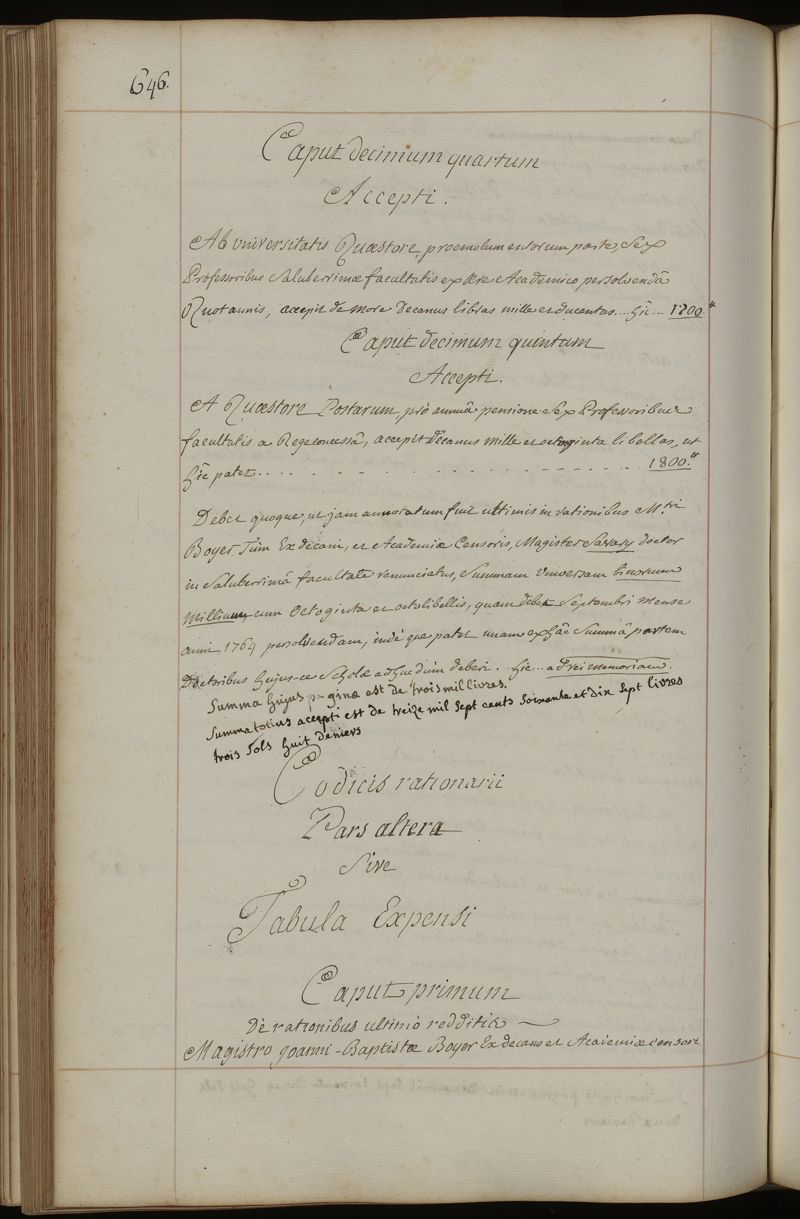 646.
Caput decimum quartum
Accepti.
Ab universitatis Quæstore, pro emolumentorum parte, Sex
Professoribus Saluberrimæ facultatis ex Ære Academico persolvendâ
Quotannis, accepit de more Decanus libras mille et ducentas.... hîc... 1200.ᵗᵗ
Caput decimum quintum
Accepti.
A Quæstore Postarum pro annuâ pensione Sex Professoribus
facultatis a Rege concessâ, accepit decanus mille et octoginta libellas, ut
hîc patet . . . . . . . . . . . . . . . . . . . . . . . . . 1800.ᵗᵗ
Debet quoque, ut jam annotatum fuit ultimis in rationibus M.ᵗʳⁱ
Boyer Tùm Exdecani, et Academiæ Censoris, Magister Savary doctor
in Saluberrimâ facultate renunciatus, Summam Universam binorum
Millium cum Octoginta et octo libellis, quam debet Septembri mense
anni 1764 persolvendam, indé que patet unam ex hâc Summâ partem
Doctoribus hujus-ce Scholæ adhuc dùm deberi . hic... ad rei memoriam.
Summa hujus paginæ est de trois mil livres.
Summa totius accepti est de treize mil Sept cents Soixante et dix Sept livres
trois Sols huit deniers
Codicis rationarii
Pars altera
Sive
Tabula Expensi
Caput primum
De rationibus ultimò redditis
Magistro Joanni-Baptistæ Boyer Exdecano et Academiæ censori